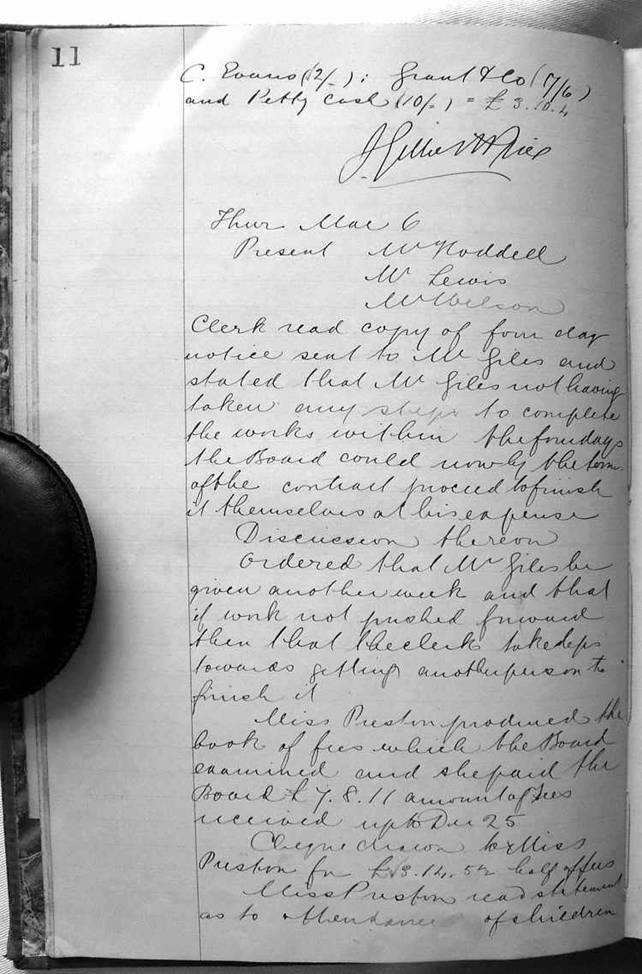 11
C. Evans (2/-): Grant & Co (7/6)
and Petty Cash (10/-) = £3.10.4
Thur Mar 6
Present Mr Hoddell
Mr Lewis
Mr Wilson
Clerk read copy of four day
notice sent to Mr Giles and
stated that Mr Giles not having
taken any steps to complete
the works within the four days
the Board could now by the term
of the contract proceed to finish
it themselves at his expense
Discussion thereon
Ordered that Mr Giles be
given another week and that
if work not pushed forward
then that the clerk take steps
towards getting another person to
finish it
Miss Preston produced the
book of fees which the Board
examined and she paid the
Board £7.8.11 amount of fees
received up to Dec 25
Cheque drawn to Miss
Preston for £3.14.5½ half of fees
Miss Preston read statement
as to attendance of children